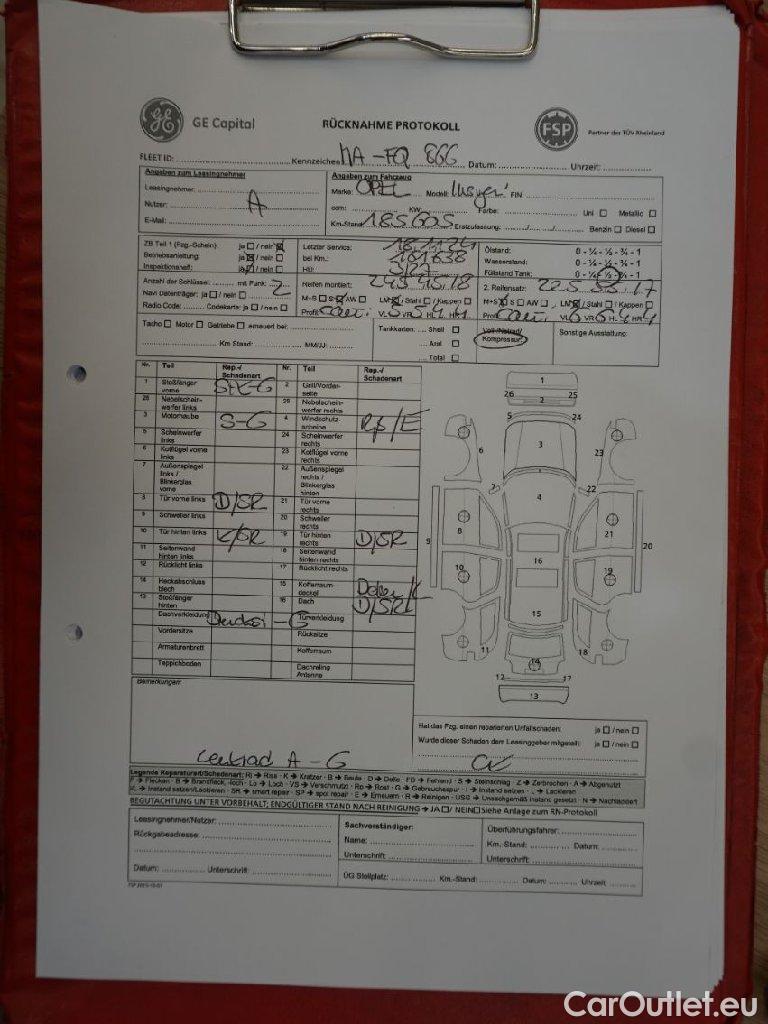 GE Capital
RÜCKNAHME PROTOKOLL
FSP
Partner der TÜV Rheinland
FLEET ID: Kennzeichen MA-FQ 866 Datum: Uhrzeit:
Angaben zum Leasingnehmer
Leasingnehmer:
Nutzer: A
E-Mail:
Angaben zum Fahrzeug
Marke: OPEL Modell: FIN
ccm: KW: Farbe: Uni Metallic
Km-Stand 185605 Erstzulassung: Benzin Diesel
ZB Teil 1 (Fzg.-Schein): ja / nein
Betriebsanleitung: ja / nein
Inspektionsheft: ja / nein
Letzter Service:
bei Km.: 181638
HU:
Ölstand: 0 - ¼ - ½ - ¾ - 1
Wasserstand: 0 - ¼ - ½ - ¾ - 1
Füllstand Tank: 0 - ¼ - ½ - ¾ - 1
Anzahl der Schlüssel: mit Funk: 2
Navi Datenträger: ja / nein
Radio Code: Codekarte: ja / nein
Reifen montiert: 245 45 18
M+S S AW LM / Stahl / Kappen
Profil
2. Reifensatz: 225 55 17
M+S S AW LM / Stahl / Kappen
Profil
Tacho Motor Getriebe erneuert bei:
Km Stand: MM/JJ:
Tankkarten: Shell
Aral
Total
Voll-/Notrad/
Kompressor:
Sonstige Ausstattung:
Nr. Teil Rep.-/ Schadenart Nr. Teil Rep.-/ Schadenart
1 Stoßfänger vorne 2 Grill/Vorder-seite
26 Nebelschein-werfer links 25 Nebelschein-werfer rechts
3 Motorhaube S-G 4 Windschutz-scheibe
5 Scheinwerfer links 24 Scheinwerfer rechts
6 Kotflügel vorne links 23 Kotflügel vorne rechts
7 Außenspiegel links / Blinkerglas vorne 22 Außenspiegel rechts / Blinkerglas hinten
8 Tür vorne links D/SR 21 Tür vorne rechts
9 Schweller links 20 Schweller rechts
10 Tür hinten links K/SR 19 Tür hinten rechts D/SR
11 Seitenwand hinten links 18 Seitenwand hinten rechts
12 Rücklicht links 17 Rücklicht rechts
14 Heckabschluss blech 15 Kofferraum-deckel
13 Stoßfänger hinten 16 Dach D/SR
Dachverkleidung Türverkleidung
Vordersitze Rücksitze
Armaturenbrett Kofferraum
Teppichboden Dachreling Antenne
1
26 2 25
5 24
3
6
23
7
22
4
8
21
9
20
16
10
19
15
11
18
14
12 17
13
Bemerkungen:
Lenkrad A - G
Hat das Fzg. einen reparierten Unfallschaden: ja / nein
Wurde dieser Schaden dem Leasinggeber mitgeteilt: ja / nein
Legende Reparaturart/Schadenart: Ri → Riss · K → Kratzer · B → Beule · D → Delle · FD → Fehlend · S → Steinschlag · Z → Zerbrochen · A → Abgenutzt
F → Flecken · B → Brandfleck, -loch · Lo → Loch · VS → Verschmutzt · Ro → Rost · G → Gebrauchsspur · I → Instand setzen · L → Lackieren
IL → Instand setzen/Lackieren · SR → smart repair · SP → spot repair · E → Erneuern · R → Reinigen · USG → Unsachgemäß instand gesetzt · N → Nachlackiert
BEGUTACHTUNG UNTER VORBEHALT; ENDGÜLTIGER STAND NACH REINIGUNG → JA / NEIN siehe Anlage zum RN-Protokoll
Leasingnehmer/Nutzer:
Rückgabeadresse:
Datum: Unterschrift:
Sachverständiger:
Name:
Unterschrift
Überführungsfahrer:
Km. Stand: Datum:
Unterschrift:
ÜG Stellplatz: Km.-Stand: Datum: Uhrzeit
CarOutlet.eu